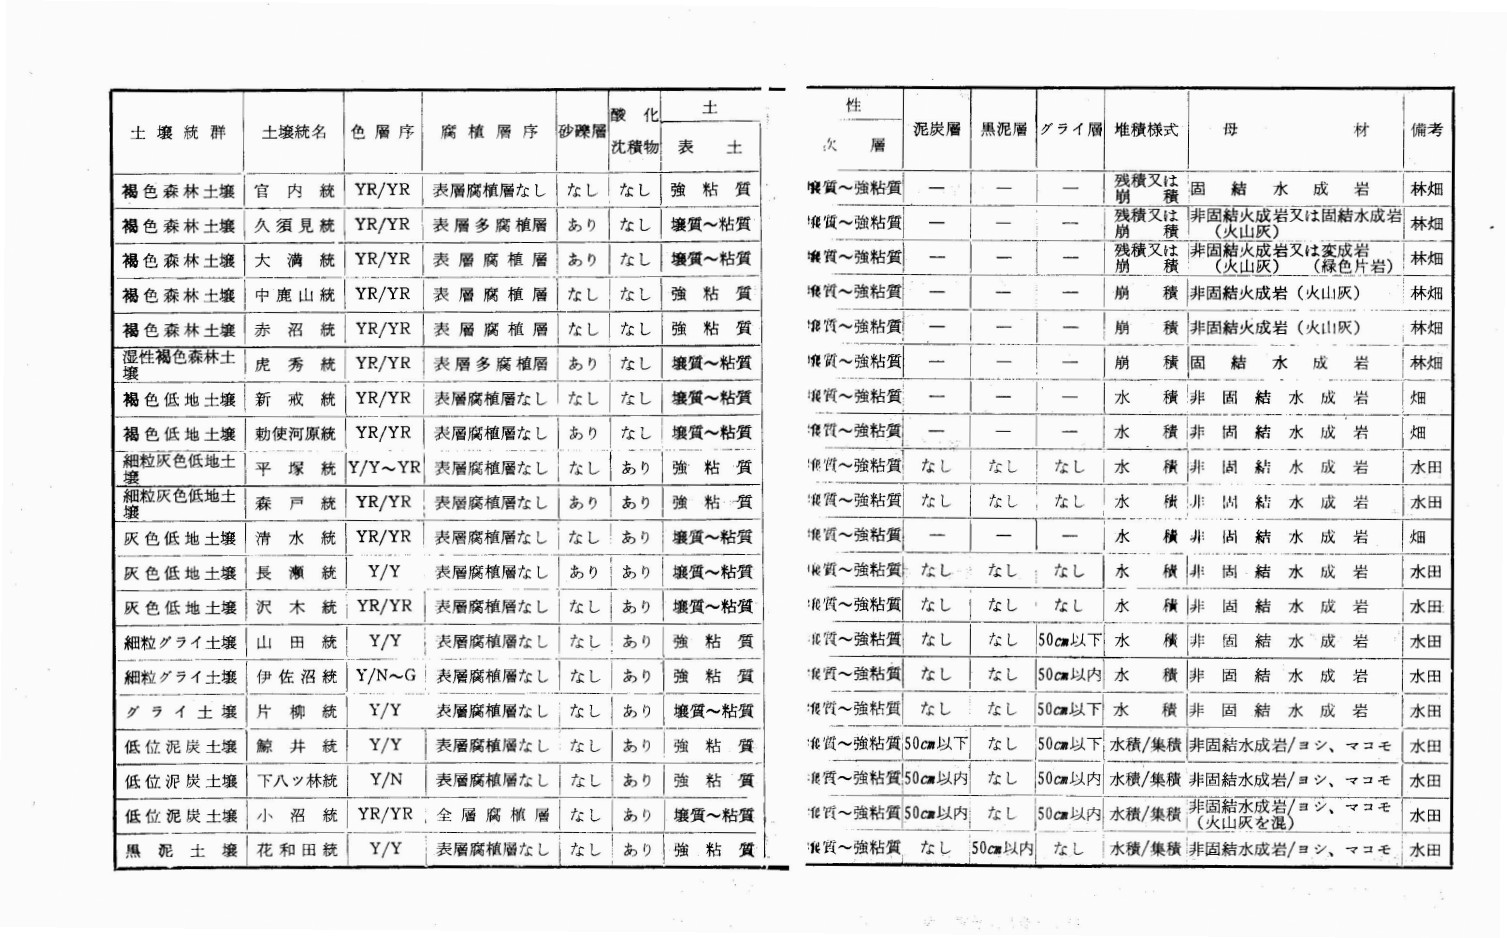 土壌統群 土壌統名 色層序 腐植層序 砂礫層 酸化沈積物 土性 表土 次層 泥炭層 黒泥層 グライ層 堆積様式 母材 備考
褐色森林土壌 官内統 YR/YR 表層腐植層なし なし なし 強粘質 壌質〜強粘質 — — — 残積又は崩積 固結水成岩 林畑
褐色森林土壌 久須見統 YR/YR 表層多腐植層 あり なし 壌質〜粘質 壌質〜強粘質 — — — 残積又は崩積 非固結火成岩又は固結水成岩(火山灰) 林畑
褐色森林土壌 大満統 YR/YR 表層腐植層 あり なし 壌質〜粘質 壌質〜強粘質 — — — 残積又は崩積 非固結火成岩又は変成岩(火山灰)(緑色片岩) 林畑
褐色森林土壌 中鹿山統 YR/YR 表層腐植層 なし なし 強粘質 壌質〜強粘質 — — — 崩積 非固結火成岩(火山灰) 林畑
褐色森林土壌 赤沼統 YR/YR 表層腐植層 なし なし 強粘質 壌質〜強粘質 — — — 崩積 非固結火成岩(火山灰) 林畑
湿性褐色森林土壌 虎秀統 YR/YR 表層多腐植層 あり なし 壌質〜粘質 壌質〜強粘質 — — — 崩積 固結水成岩 林畑
褐色低地土壌 新戒統 YR/YR 表層腐植層なし なし なし 壌質〜粘質 壌質〜強粘質 — — — 水積 非固結水成岩 畑
褐色低地土壌 勅使河原統 YR/YR 表層腐植層なし あり なし 壌質〜粘質 壌質〜強粘質 — — — 水積 非固結水成岩 畑
細粒灰色低地土壌 平塚統 Y/Y〜YR 表層腐植層なし なし あり 強粘質 壌質〜強粘質 なし なし なし 水積 非固結水成岩 水田
細粒灰色低地土壌 森戸統 YR/YR 表層腐植層なし あり あり 強粘質 壌質〜強粘質 なし なし なし 水積 非固結水成岩 水田
灰色低地土壌 清水統 YR/YR 表層腐植層なし なし あり 壌質〜粘質 壌質〜強粘質 — — — 水積 非固結水成岩 畑
灰色低地土壌 長瀬統 Y/Y 表層腐植層なし あり あり 壌質〜粘質 壌質〜強粘質 なし なし なし 水積 非固結水成岩 水田
灰色低地土壌 沢木統 YR/YR 表層腐植層なし なし あり 壌質〜粘質 壌質〜強粘質 なし なし なし 水積 非固結水成岩 水田
細粒グライ土壌 山田統 Y/Y 表層腐植層なし なし あり 強粘質 壌質〜強粘質 なし なし 50cm以下 水積 非固結水成岩 水田
細粒グライ土壌 伊佐沼統 Y/N〜G 表層腐植層なし なし あり 強粘質 壌質〜強粘質 なし なし 50cm以内 水積 非固結水成岩 水田
グライ土壌 片柳統 Y/Y 表層腐植層なし なし あり 壌質〜粘質 壌質〜強粘質 なし なし 50cm以下 水積 非固結水成岩 水田
低位泥炭土壌 鯨井統 Y/Y 表層腐植層なし なし あり 強粘質 壌質〜強粘質 50cm以下 なし 50cm以下 水積/集積 非固結水成岩/ヨシ、マコモ 水田
低位泥炭土壌 下八ッ林統 Y/N 表層腐植層なし なし あり 強粘質 壌質〜強粘質 50cm以内 なし 50cm以内 水積/集積 非固結水成岩/ヨシ、マコモ 水田
低位泥炭土壌 小沼統 YR/YR 全層腐植層 なし あり 壌質〜粘質 壌質〜強粘質 50cm以内 なし 50cm以内 水積/集積 非固結水成岩/ヨシ、マコモ(火山灰を混) 水田
黒泥土壌 花和田統 Y/Y 表層腐植層なし なし あり 強粘質 壌質〜強粘質 なし 50cm以内 なし 水積/集積 非固結水成岩/ヨシ、マコモ 水田